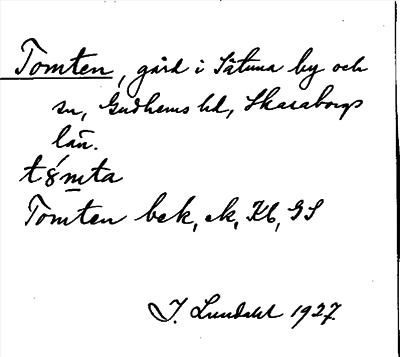 Tomten, gård i Sätuna by och
sn, Gudhems hd, Skaraborgs
län.
t8́mta
Tomten bek, ek, Kb, GS
J. Lundahl 1927.